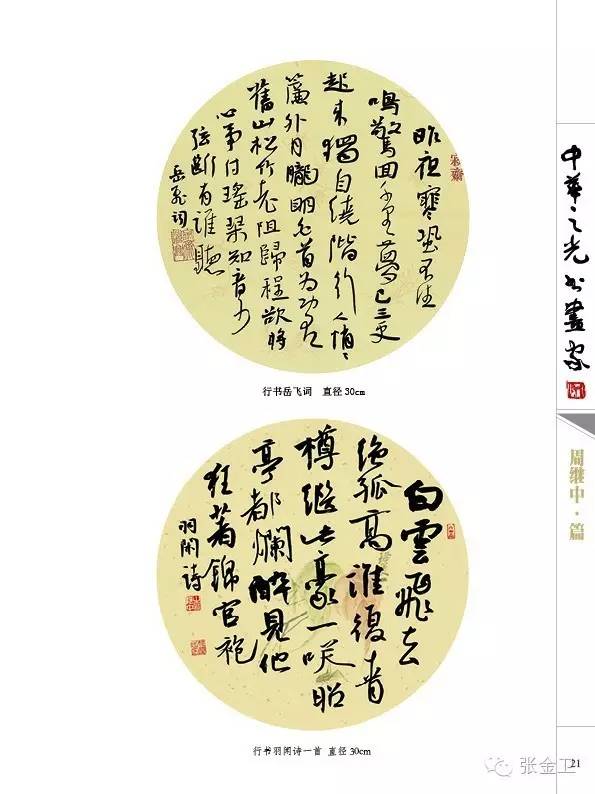 昨夜寒蛩不住
鳴驚回千里夢已三更
起來獨自繞階行人悄悄
簾外月朧明白首为功名
舊山松竹老阻歸程欲將
心事付瑤琴知音少
弦斷有誰聽
岳飛词
行书岳飞词 直径30cm
白雲飛去
絶孤高誰復青
樽繼此豪一咲昭
亭都爛醉見他
狂著錦官袍
羽閑詩
行书羽闲诗一首 直径30cm
中華之光书畫家
周继中·篇
21
张金工